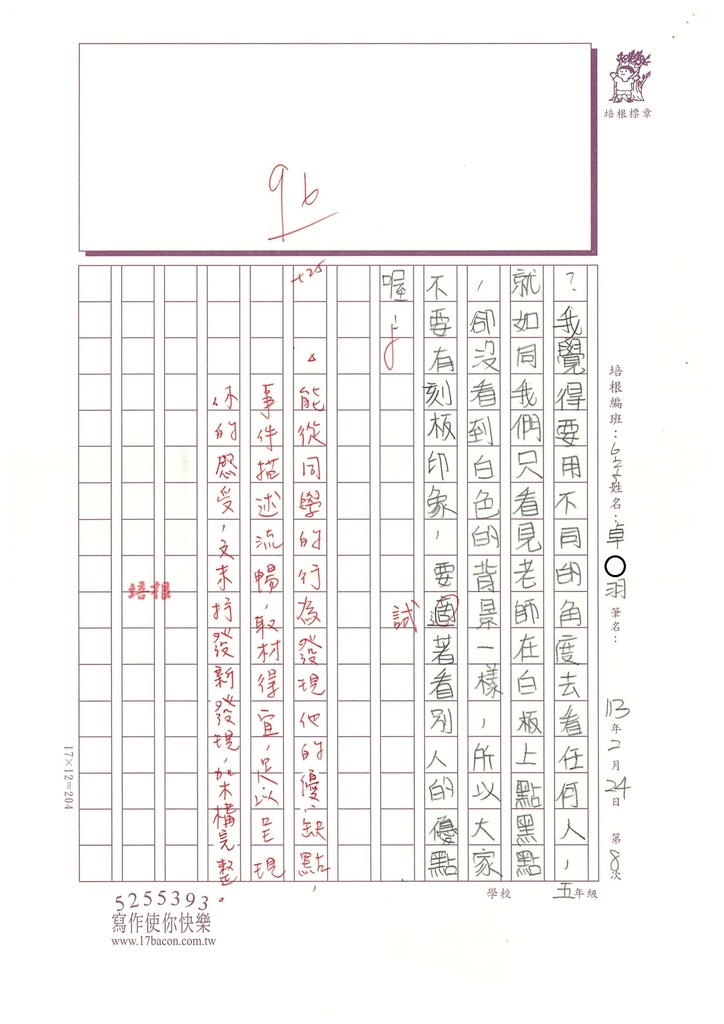 培根標章
96
培根編班：
姓名：卓○羽
筆名：
113年2月24日
第8次
五年級
學校
？我覺得要用不同的角度去看任何人，
就如同我們只看見老師在白板上點黑點
，卻沒看到白色的背景一樣，所以大家
不要有刻板印象，要適著看別人的優點
喔！
試
+25
能從同學的行為發現他的優、缺點，
事件描述流暢，取材得宜，足以呈現
你的感受，文末抒發新發現，架構完整。
培根
17×12=204
5255393
寫作使你快樂
www.17bacon.com.tw